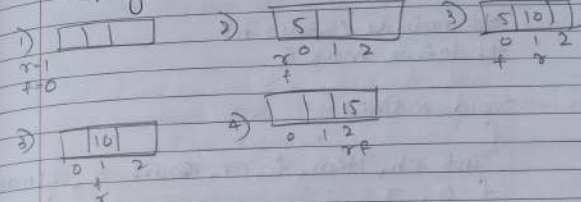 1)
r-1
f=0
2) 5
0 1 2
r
f
3) 5 10
0 1 2
f r
3) 10
0 1 2
f
r
4) 15
0 1 2
r f